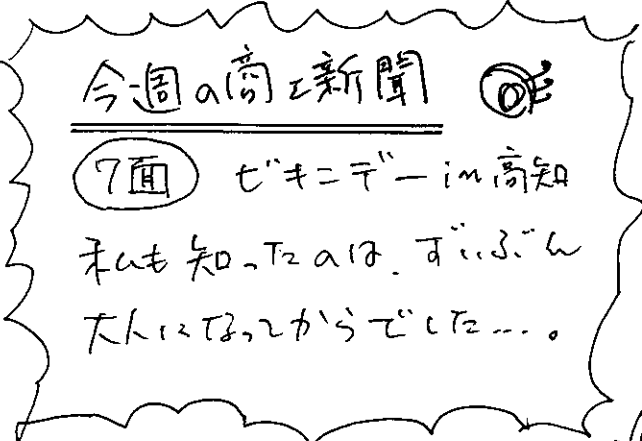 今週の商工新聞
7面 ビキニデーin高知
私も知ったのは、ずいぶん
大人になってからでした…。